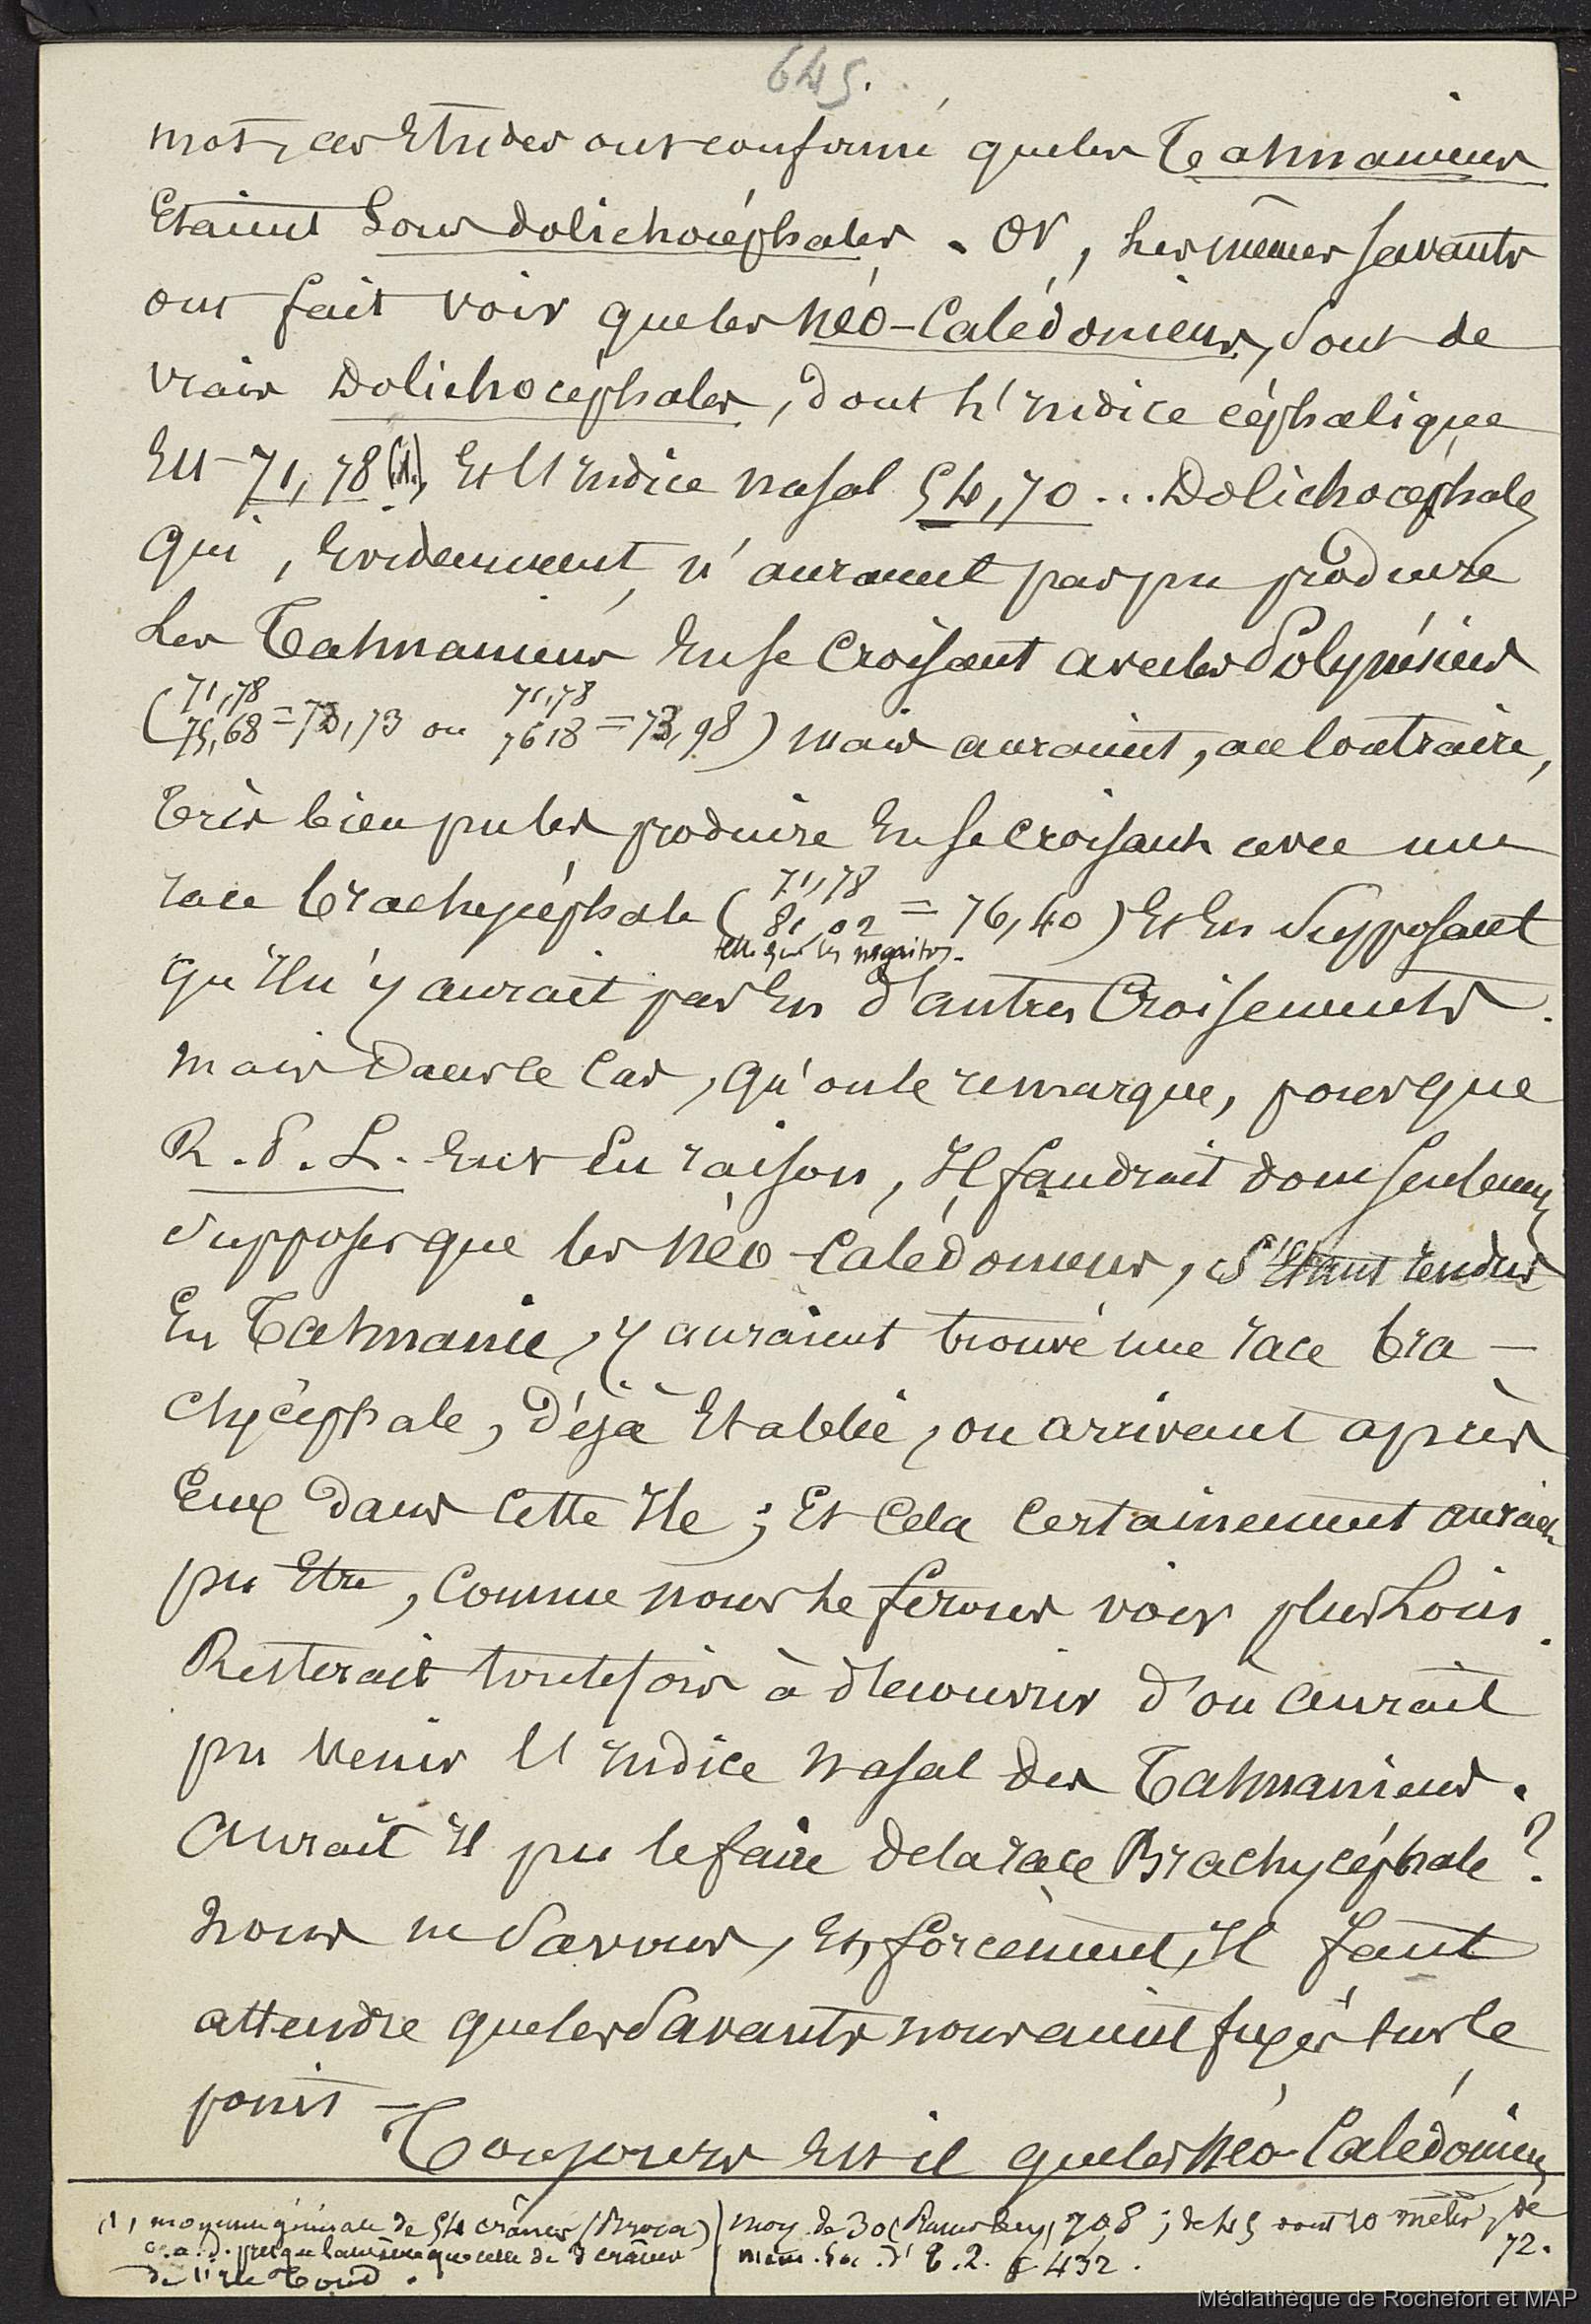 645.
mot, ces Etudes ont confirmé que les Tasmaniens
Etaient Sous dolichocéphales. Or, les mêmes savants
ont fait voir que les Néo-Calédoniens, sont de
vrais Dolichocéphales, dont l'Indice céphalique
Est 71,78 (1), Et l'Indice nasal 54,70... Dolichocéphales
qui, Evidemment, n'auraient pas pu produire
Les Tasmaniens En se Croisant avec les Polynésiens
(71,78 75,68 = 73,73 ou 71,78 76,18 = 73,98) mais auraient, au Contraire,
très bien pu les produire En se croisant avec une
race brachycéphale (71,78 81,02 = 76,40) Et En Supposant
telle que les négritos.
qu'Il n'y aurait pas Eu d'autres Croisements.
Mais Dans ce Cas, qu'on le remarque, pour que
R.P.L. Eut Eu raison, Il faudrait donc seulement
Supposer que les Néo-Calédoniens, S'Etant rendus
En Tasmanie, y auraient trouvé une race bra-
chycéphale, Déjà Etablie, ou arrivant après
Eux dans Cette Ile ; Et Cela Certainement aurait
pu Etre, Comme nous le ferons voir plus Loin.
Resterait toutefois à découvrir d'où aurait
pu Venir l'Indice nasal des Tasmaniens.
Aurait Il pu le faire de la race Brachycéphale ?
Nous ne Savons, Et, forcément, Il faut
attendre que les Savants nous aient fixés sur ce
point —
Toujours Est il que les Néo-Calédoniens
(1) moyenne générale de 54 crânes (Broca)
c.a.d. presque la même que celle de 3 crânes
de l'Ile Toud.
moy. de 30 708 ; de 45 dont 10 métis, de 72.
mém. Soc. d' T. 2. p 432.